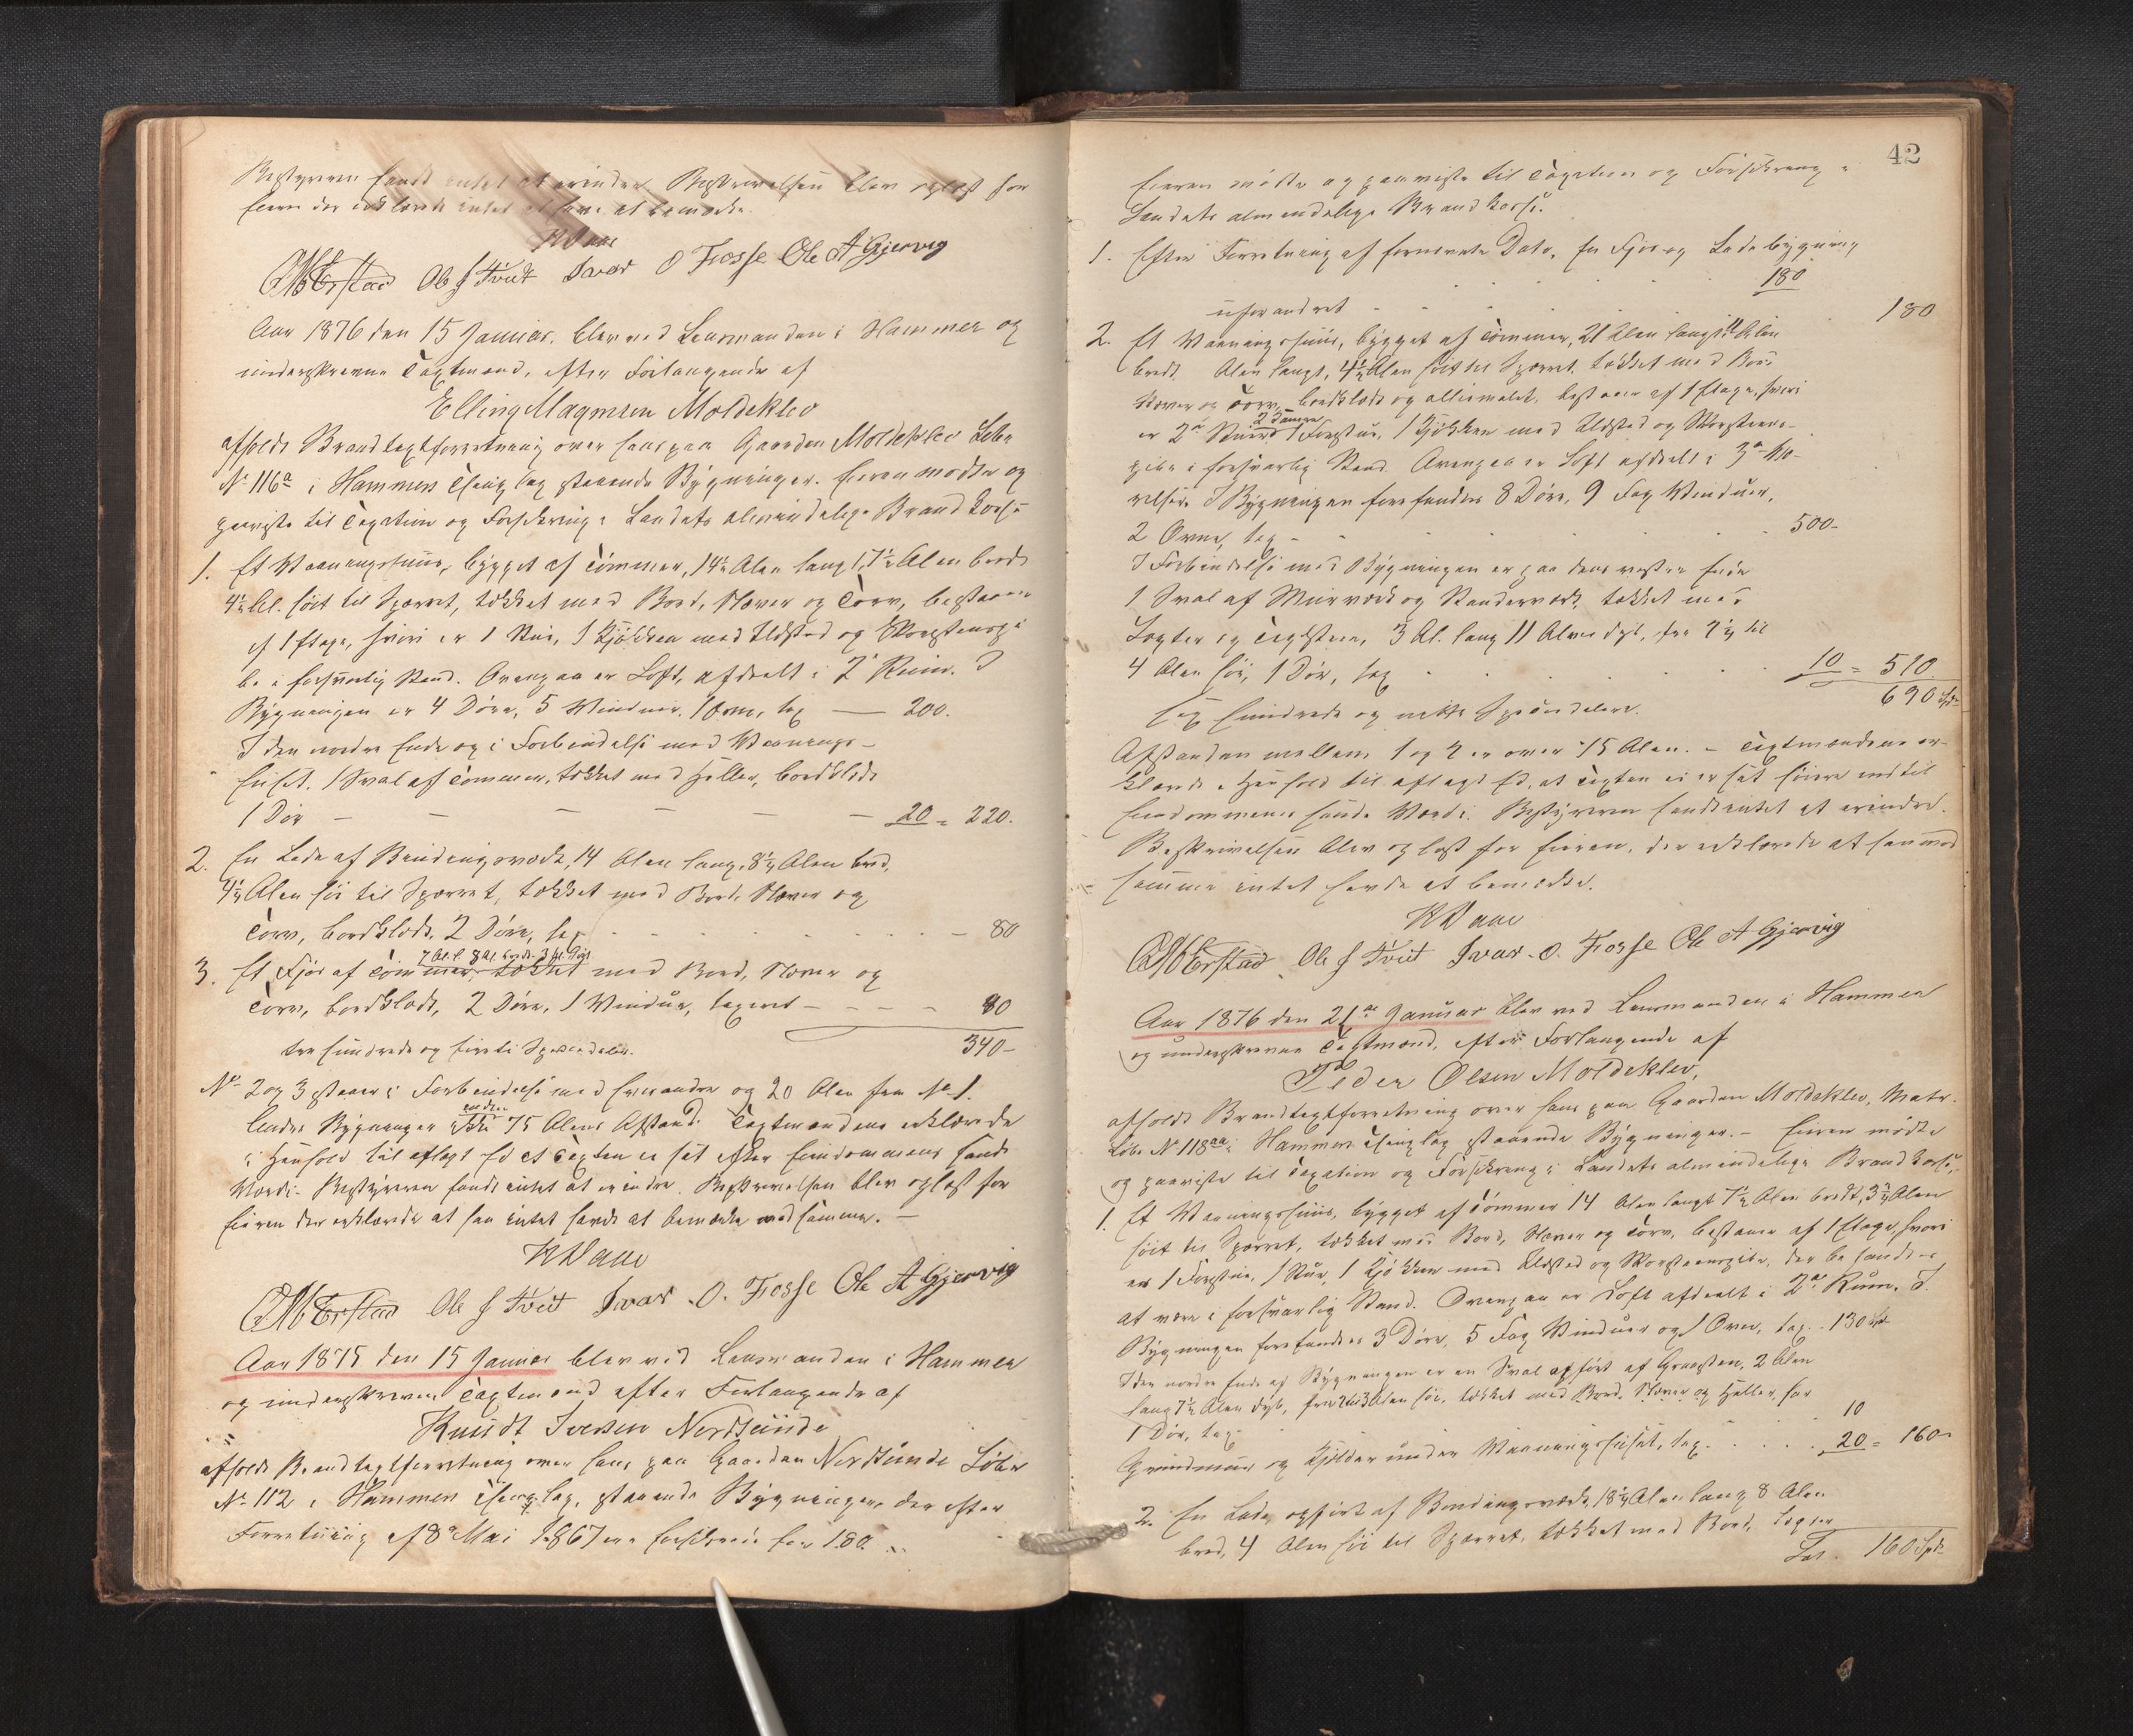 Bestyreren fandt intet at erindre. Beskrivelsen blev oplæst for
Eieren der erklærede intet at have at bemærke.
KDaae
Ole J Tveit Ivar O Fosse Ole A Gjervig
Aar 1876 den 15 Januar. blev ved Lensmanden i Hammer og
underskrevne Taxtmænd, efter Forlangende af
Elling Magnesen Moldeklev
afholdt Brandtaxtforretning over hans paa Gaarden Moldeklev Løbe
No 116a i Hammers Thinglag staaende Bygninger. Eieren mødte og
paaviste til Taxation og Forsikring i Landets almindelige Brandkasse
1. Et Vaaningshuus, bygget af Tømmer, 14½ Alen langt, 7½ Alen bredt
4½ Al. høit til Sparret, tækket med Bord, Næver og Torv, bestaaer
af 1 Etage, hvori er 1 Stue, 1 Kjøkken med Ildsted og Skorstenspi-
be i forsvarlig Stand. Ovenpaa er Loft, afdeelt i 2 Rum. I
Bygningen er 4 Døre, 5 Vinduer, 1 Ovn, tax — 200.
I den nordre Ende og i Forbindelse med Vaanings-
huset. 1 Sval af Tømmer, tækket med Heller, bordklædt
1 Dør — — — — — 20 = 220.
2. En Lade af Bindingsværk, 14 Alen lang, 8½ Alen bred,
4½ Alen høi til Sparret, tækket med Bord, Næver og
Torv, bordklædt, 2 Døre, tax - - - - - 80
7 Al. l. 8 Al. bredt. 3 Al. høit
3. Et Fjøs af Tømmer, tækket med Bord, Næver og
Torv, bordklædt, 2 Døre, 1 Vindue, taxeret - - - - 80
tre hundrede og fireti Speciedaler. 340-
No 2 og 3 staaer i Forbindelse med hverandre og 20 Alen fra No 1.
Andre Bygninger 75 Alens Afstand. Taxtmændene erklærede
i Henhold til aflagt Ed at Taxten er sat efter Eiendommens sande
Værdi. Bestyreren fandt intet at erindre. Beskrivelsen blev oplæst for
Eieren der erklærede at han intet havde at bemærke ved samme. —
KDaae
Ole J Tveit Ivar O. Fosse Ole A Gjervig
Aar 1875 den 15 Januar blev ved Lensmanden i Hammer
og underskrevne Taxtmænd efter Forlangende af
Knudt Iversen Nordsunde
afholdt Brandtaxtforretning over hans paa Gaarden Nordsunde Løbe
No 112 i Hammers Thinglag, staaende Bygninger, der efter
Forretning af 8de Mai 1867 er forsikrede for 180.
42
Eieren mødte og paaviste til Taxation og Forsikring i
Landets almindelige Brandkasse.
1. Efter Forretning af fornævnte Dato. En Fjøs og Ladebygning
180
uforandret - - - - - 180
2. Et Vaaningshuus, bygget af Tømmer, 21 Alen langt Alen
bredt Alen langt, 4½ Alen høit til Sparret, tækket med Bord
Næver og Torv, bordklædt og oliemalet, bestaaer af 1 Etage, hvori
2 Kamre
er 2de Stuer 1 Forstue, 1 Kjøkken med Ildsted og Skorsteens-
pibe i forsvarlig Stand. Ovenpaa er Loft afdeelt i 3de Væ-
relser. I Bygningen forefandtes 8 Døre, 9 Fag Vinduer,
2 Ovne, tax - - - - - 500-
I Forbindelse med Bygningen er paa dens vestre Ende
1 Sval af Muurværk og Standerværk, tækket med
Lægter og Taglsteen, 3 Al. lang 11 Alen dyb, fra 2½ til
4 Alen høi, 1 Dør, tax - - - - 10 = 510
690 Spd
sex hundrede og nitti Speciedaler.
Afstanden mellem 1 og 2 er over 75 Alen. - Taxtmændene er-
klærede i Henhold til aflagt Ed, at Taxten ei er sat høiere end til
Eiendommens sande Værdi. Bestyreren fandt intet at erindre.
Beskrivelsen blev oplæst for Eieren, der erklærede at han ved
samme intet havde at bemærke.
KDaae
Ole J Tveit Ivar. O. Fosse Ole A Gjervig
Aar 1876 den 21de Januar blev ved Lensmanden i Hammer
og underskrevne Taxtmænd, efter Forlangende af
Peder Olsen Moldeklev,
afholdt Brandtaxtforretning over hans paa Gaarden Moldeklev, Matr.
Løbe No 118aa i Hammers Thinglag staaende Bygninger. - Eieren mødte
og paaviste til Taxation og Forsikring i Landets almindelige Brandkasse,
1. Et Vaaningshuus, bygget af Tømmer 14 Alen langt 7½ Alen bredt, 3¾ Alen
høit til Sparret, tækket med Bord, Næver og Torv, bestaaer af 1 Etage, hvori
er 1 Forstue, 1 Stue, 1 Kjøkken med Ildsted og Skorsteenspibe, der befandtes
at være i forsvarlig Stand. Ovenpaa er Loft afdeelt i 2de Rum. I
Bygningen forefandtes 3 Døre, 5 Fag Vinduer og 1 Ovn, tax. - 130 Spd
I den nordre Ende af Bygningen er en Sval opført af Graasten, 2 Alen
lang 7½ Alen dyb, fra 2 til 3 Alen høi, tækket med Bord, Næver og Heller, har
1 Dør, tax - 10
Grundmuur og Kjelder under Vaaningshuset, tax. - - - - 20 = 160-
2. En Lade, opført af Bindingsværk, 18½ Alen lang 8 Alen
bred, 4 Alen høi til Sparret, tækket med Bord, Lægter
Lat. 160 Spd